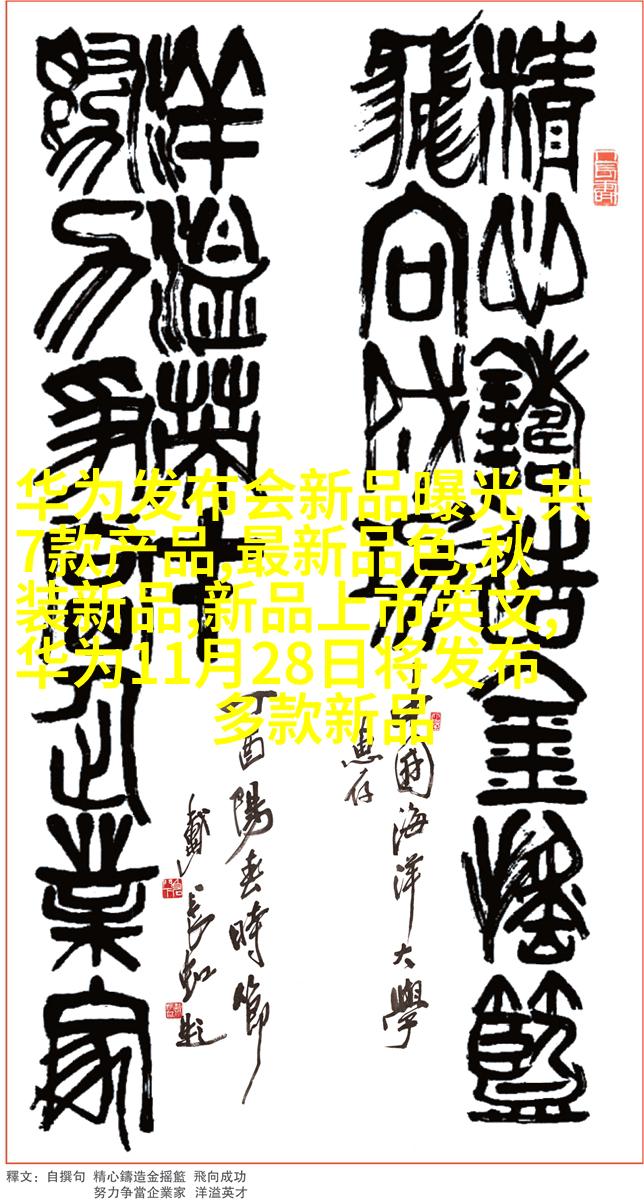 精心鑄造金摇籃
飛向成功
中國海洋大學
惠存
努力争當企業家
洋溢英才
丁酉陽春時節
戴長虹題
华为发布会新品曝光 共
7款产品,最新品色,秋
装新品,新品上市英文,
华为11月28日将发布
多款新品
釋文：自撰句 精心鑄造金摇籃 飛向成功
努力争當企業家 洋溢英才